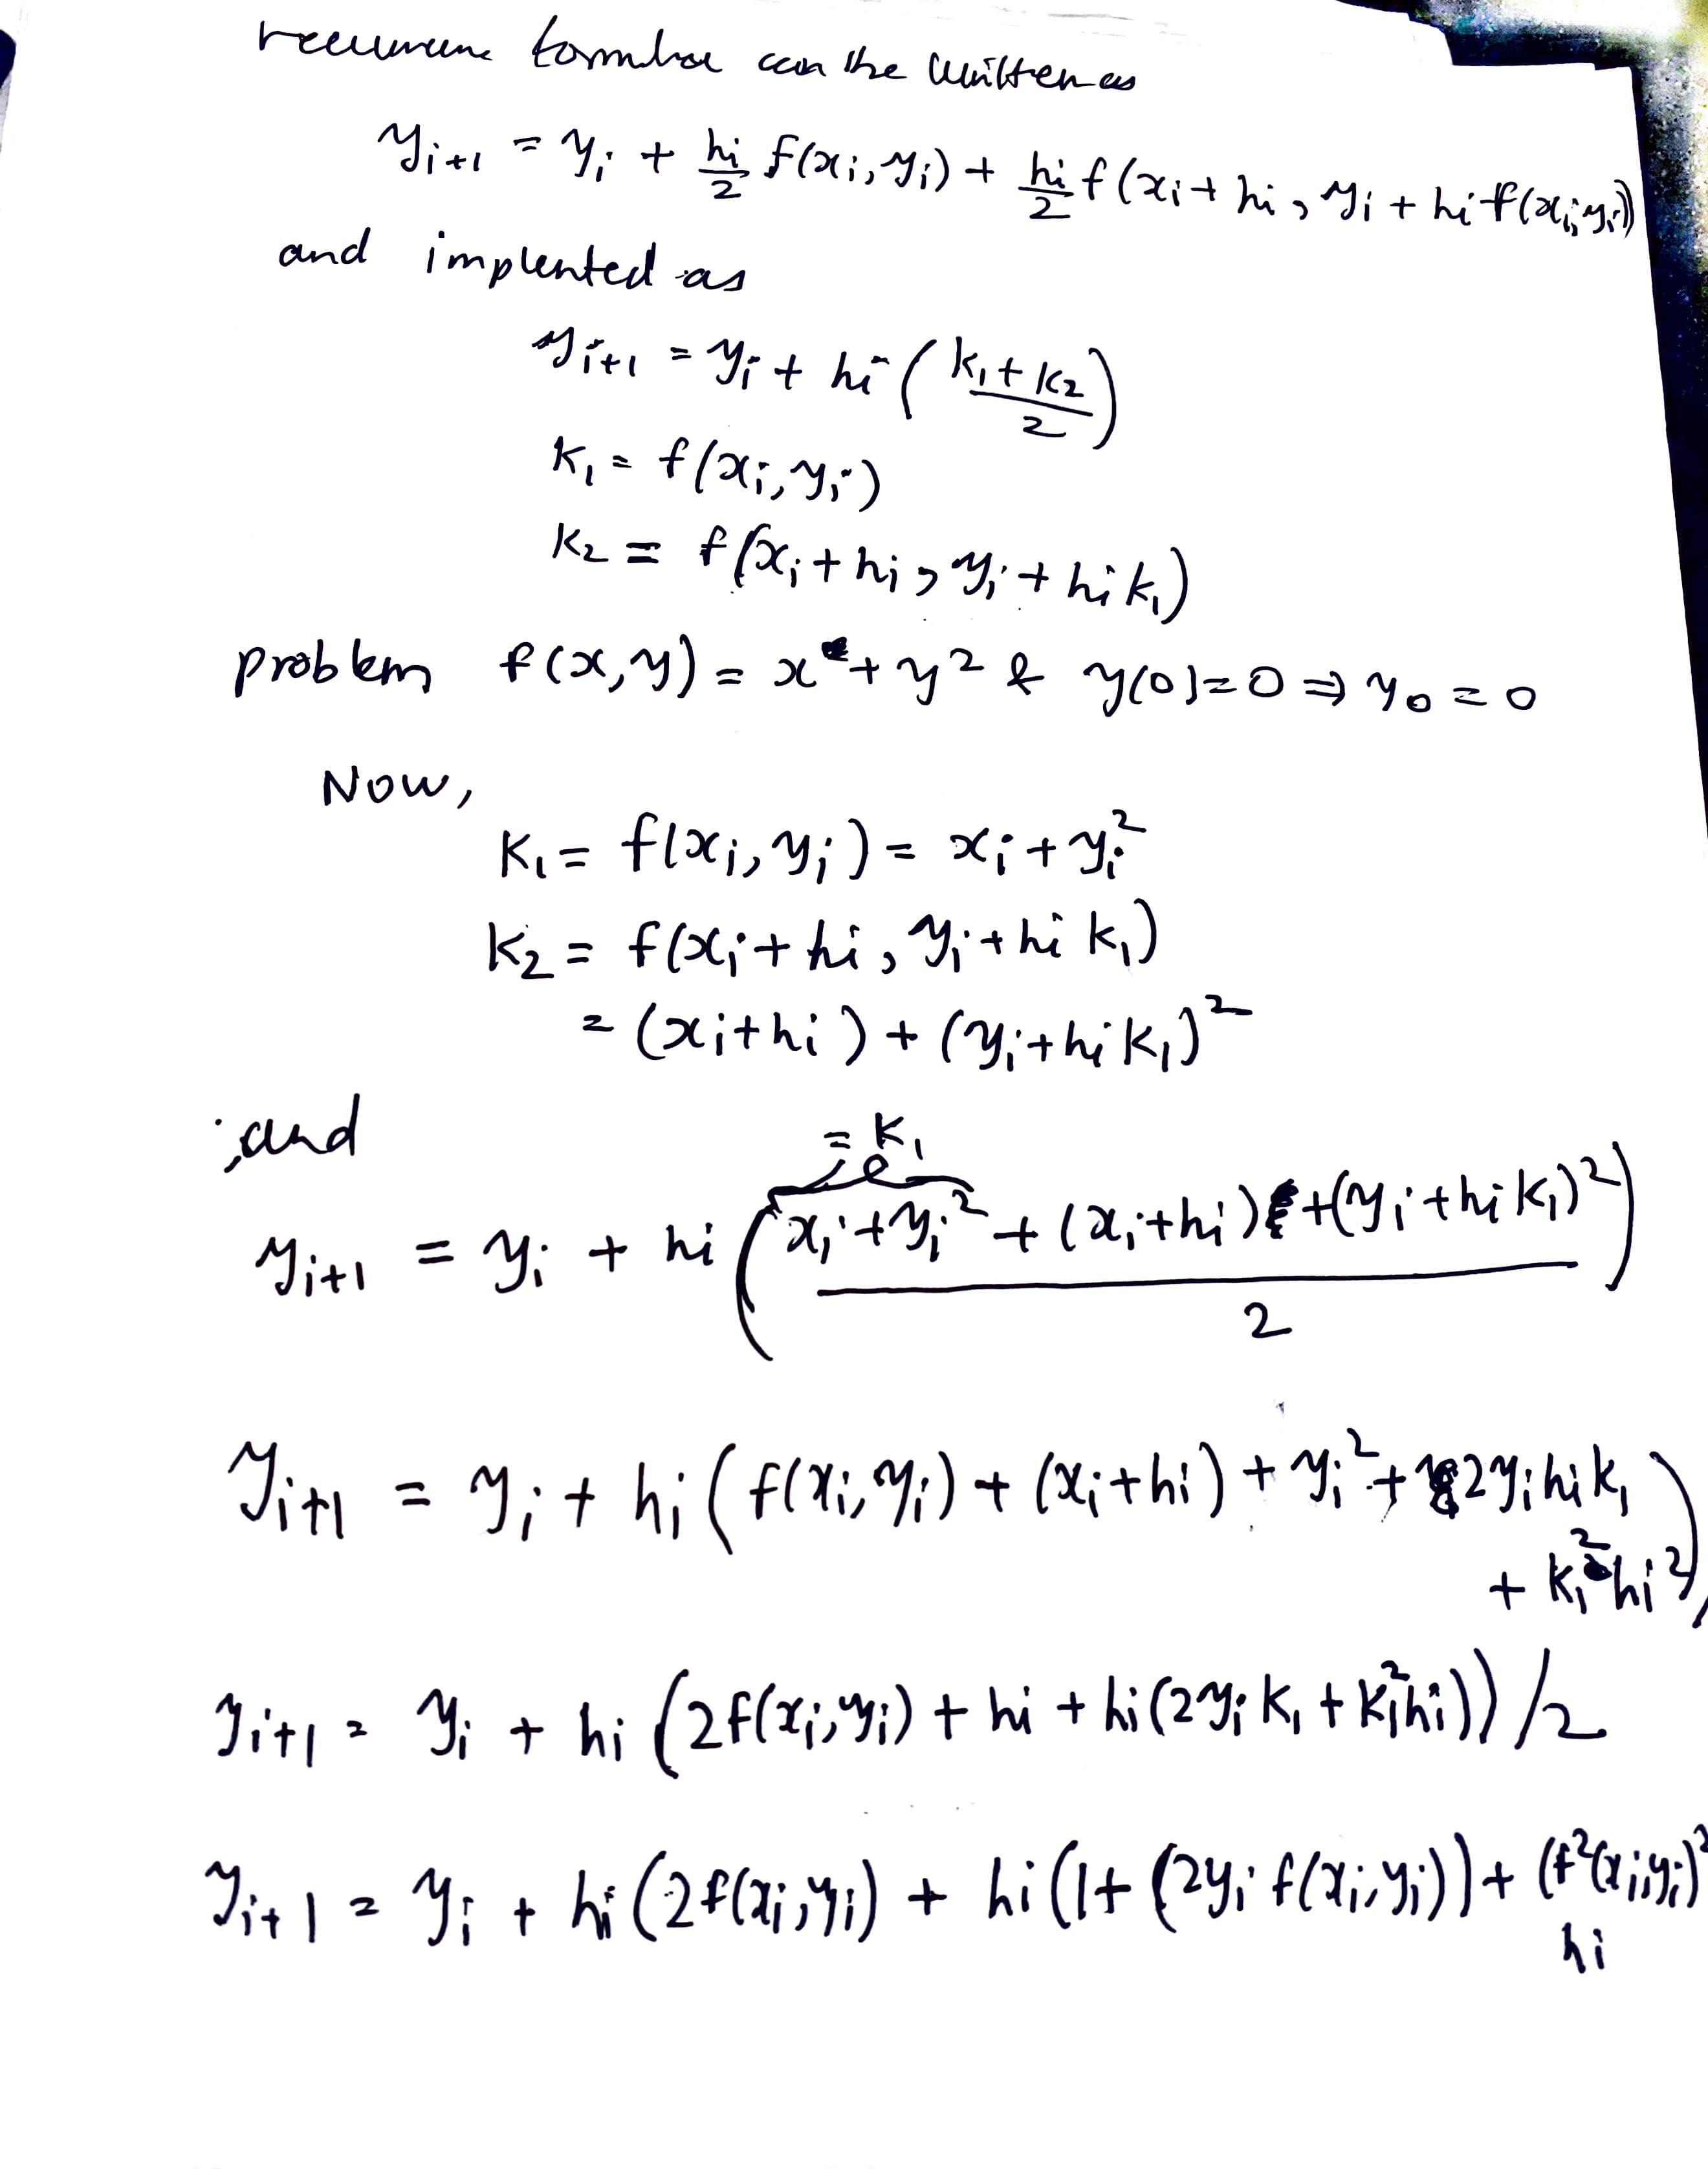 recurrence formula can the written as
y_{i+1} = y_i + hi/2 f(x_i, y_i) + hi/2 f(x_i + hi, y_i + hi f(x_i, y_i))
and implented as
y_{i+1} = y_i + hi ((k_1 + k_2)/2)
k_1 = f(x_i, y_i)
k_2 = f(x_i + hi, y_i + hi k_1)
problem f(x, y) = x + y² & y(0) = 0 ⇒ y_0 = 0
Now,
k_1 = f(x_i, y_i) = x_i + y_i²
k_2 = f(x_i + hi, y_i + hi k_1)
= (x_i + hi) + (y_i + hi k_1)²
; and
= k_1
y_{i+1} = y_i + hi ((x_i + y_i² + (x_i + hi) + (y_i + hi k_1)²)/2)
y_{i+1} = y_i + hi (f(x_i, y_i) + (x_i + hi) + y_i² + 2y_i hi k_1
+ k_1² hi²)
y_{i+1} = y_i + hi (2f(x_i, y_i) + hi + hi(2y_i k_1 + k_1² hi))/2
y_{i+1} = y_i + hi (2f(x_i, y_i) + hi (1 + (2y_i f(x_i, y_i)) + (f²(x_i, y_i)²
hi